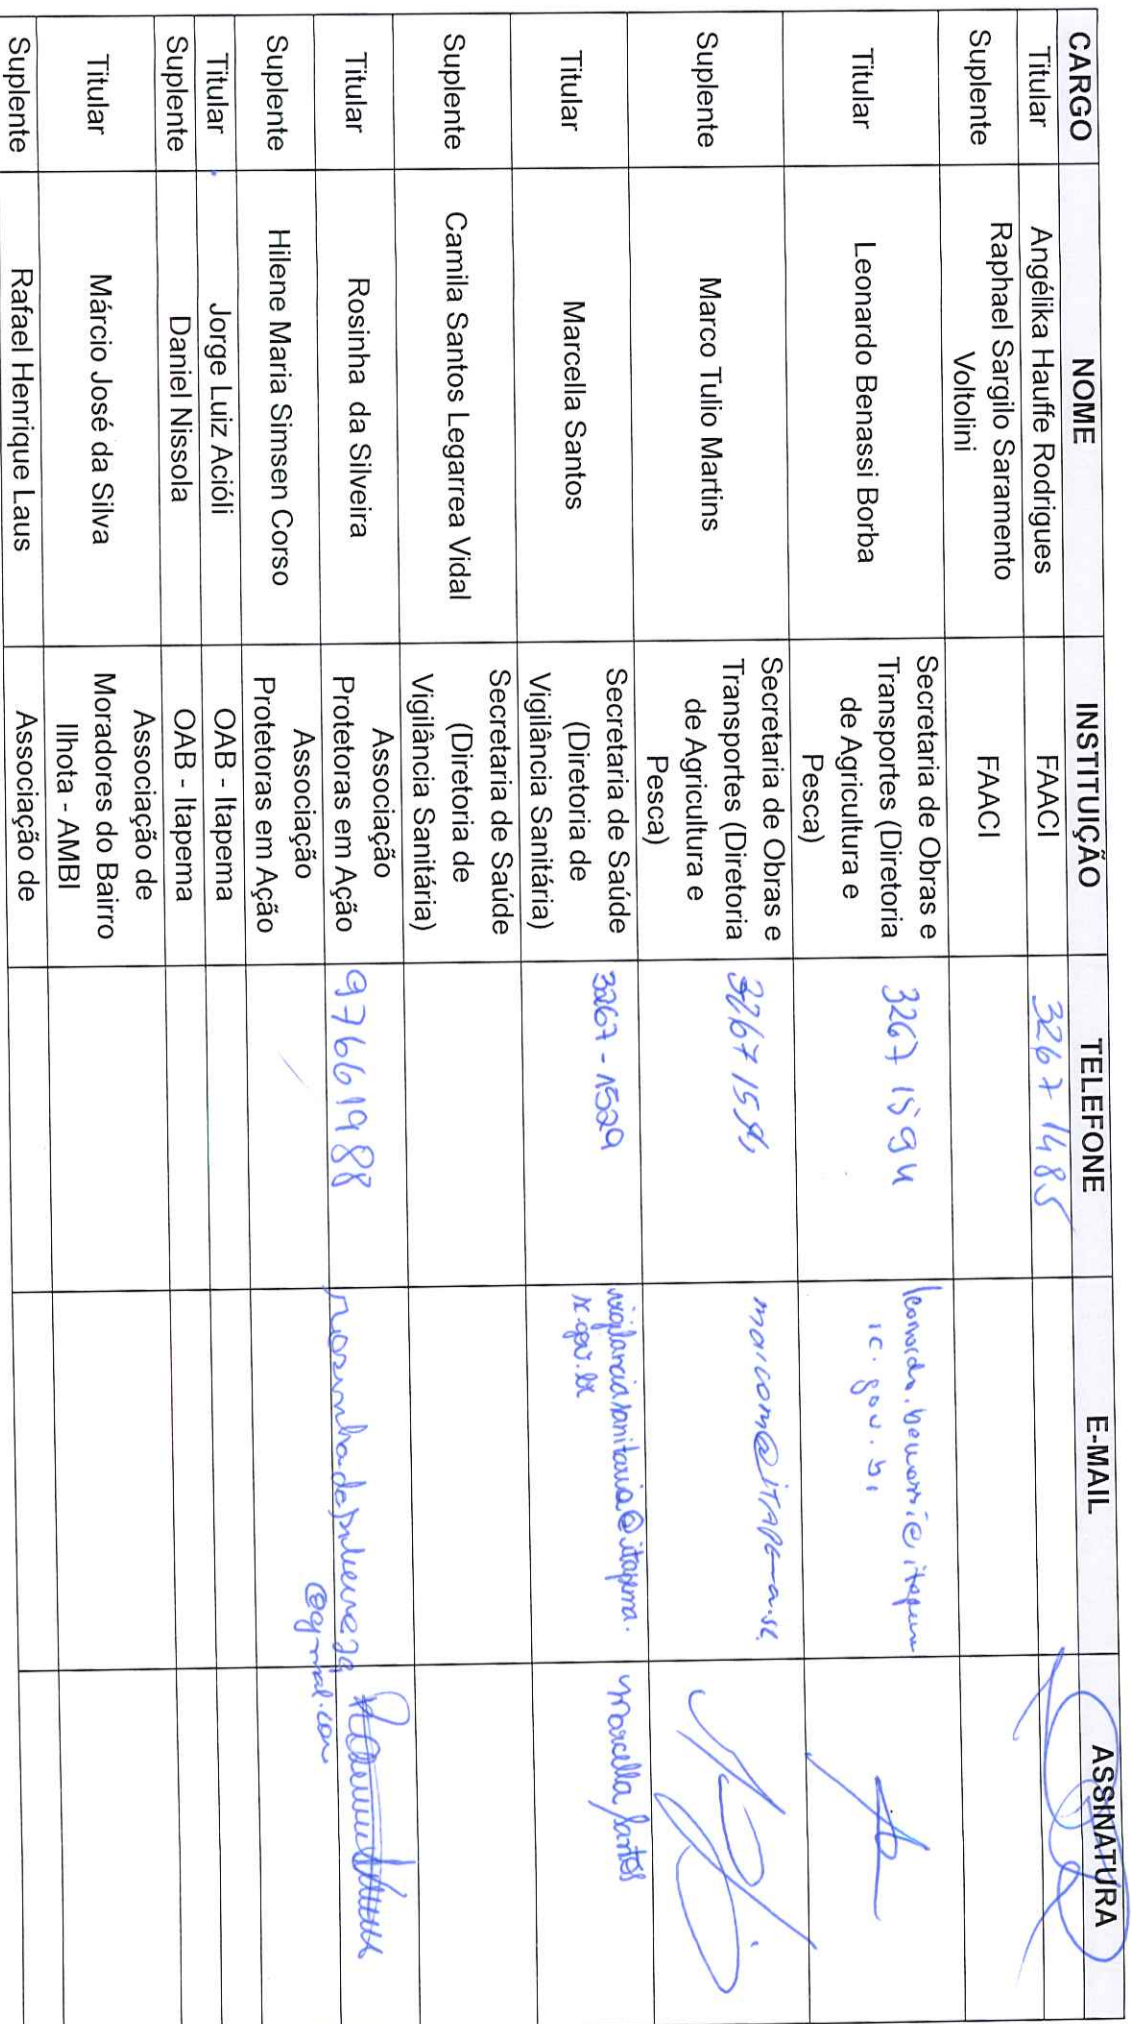 CARGO NOME INSTITUIÇÃO TELEFONE E-MAIL ASSINATURA
Titular Angélika Hauffe Rodrigues FAACI 3267 1485
Suplente Raphael Sargilo Saramento
Voltolini
FAACI
Titular Leonardo Benassi Borba
Secretaria de Obras e
Transportes (Diretoria
de Agricultura e
Pesca)
3267 1594
Suplente Marco Tulio Martins
Secretaria de Obras e
Transportes (Diretoria
de Agricultura e
Pesca)
3267
marcom@itapema.sc.
Titular Marcella Santos
Secretaria de Saúde
(Diretoria de
Vigilância Sanitária)
3267 - 1529
vigilanciasanitaria@itapema.
sc.gov.br
Marcella Santos
Suplente Camila Santos Legarrea Vidal
Secretaria de Saúde
(Diretoria de
Vigilância Sanitária)
Titular Rosinha da Silveira
Associação
Protetoras em Ação
97661988
@gmail.com
Suplente Hilene Maria Simsen Corso
Associação
Protetoras em Ação
Titular Jorge Luiz Acióli OAB - Itapema
Suplente Daniel Nissola OAB - Itapema
Titular Márcio José da Silva
Associação de
Moradores do Bairro
Ilhota - AMBI
Suplente Rafael Henrique Laus Associação de